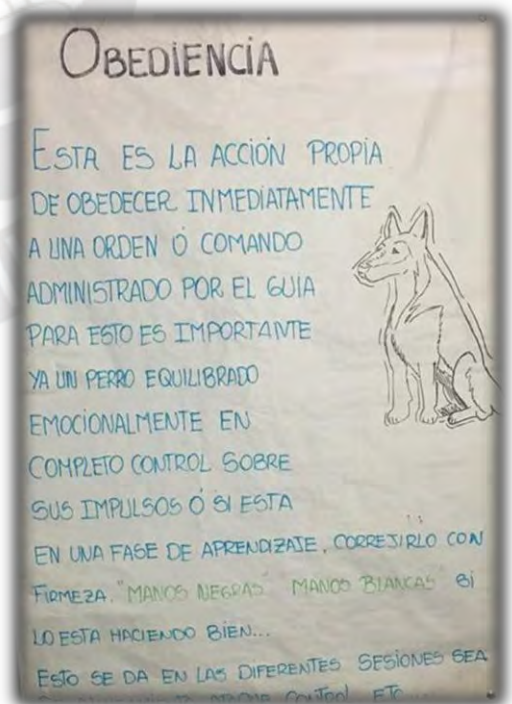 OBEDIENCIA
ESTA ES LA ACCIÓN PROPIA
DE OBEDECER INMEDIATAMENTE
A UNA ORDEN Ó COMANDO
ADMINISTRADO POR EL GUIA
PARA ESTO ES IMPORTANTE
YA UN PERRO EQUILIBRADO
EMOCIONALMENTE EN
COMPLETO CONTROL SOBRE
SUS IMPULSOS Ó SI ESTA
EN UNA FASE DE APRENDIZAJE, CORREJIRLO CON
FIRMEZA. "MANOS NEGRAS" MANOS BLANCAS" SI
LO ESTA HACIENDO BIEN...
ESTO SE DA EN LAS DIFERENTES SESIONES SEA
CONTROL ETC